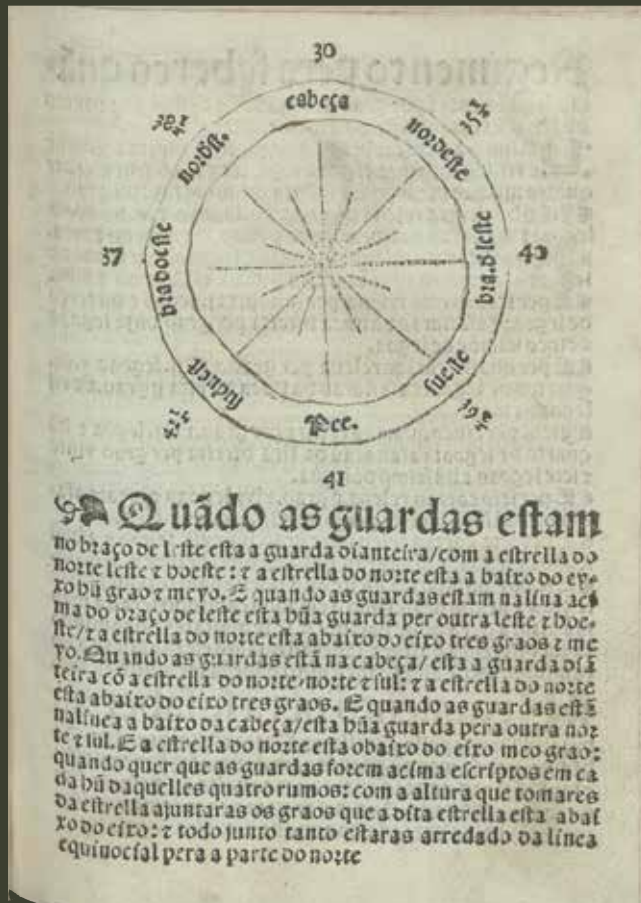 30
cabeça
nordeste
35 1/4
38 1/4
noroest.
bra doeste
37
bra.d leste
40
sueste
39 1/4
Pee.
41
Quãdo as guardas estam
no braço de leste esta a guarda dianteira/com a estrella do
norte leste ⁊ hoeste: ⁊ a estrella do norte esta a baixo do ey-
xo hũ grao ⁊ meyo. E quando as guardas estam na lina aci
ma do braço de leste esta hũa guarda per outra leste ⁊ hoe-
ste/⁊ a estrella do norte esta abaixo do eixo tres graos ⁊ me
yo. Quando as guardas estã na cabeça/ esta a guarda diã
teira cõ a estrella do norte norte ⁊ sul: ⁊ a estrella do norte
esta abaixo do eixo tres graos. E quando as guardas estã
na linea a baixo da cabeça/esta hũa guarda pera outra nor
te ⁊ sul. E a estrella do norte esta abaixo do eixo meo grao:
quando quer que as guardas forem acima escriptos em ca
da hũ daquelles quatro rumos: com a altura que tomares
da estrella ajuntaras os graos que a dita estrella esta abai
xo do eixo: ⁊ todo junto tanto estaras arredado da linea
equinocial pera a parte do norte